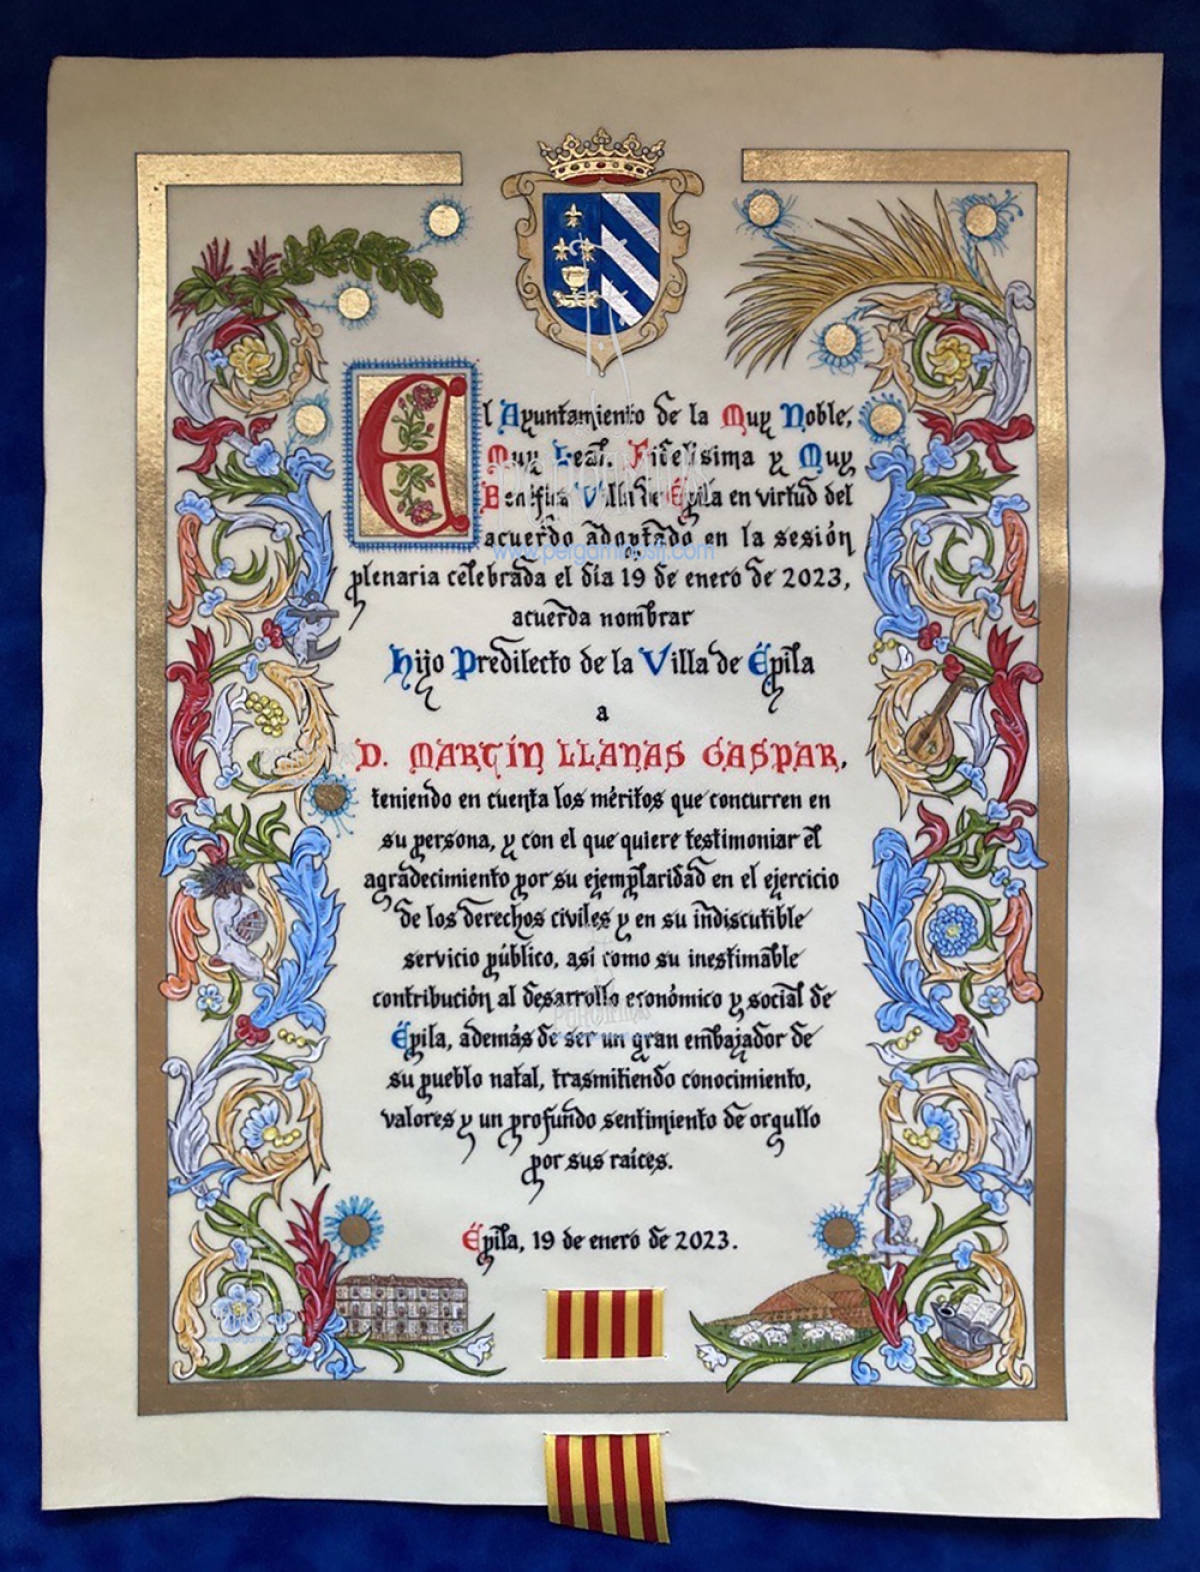 El Ayuntamiento de la Muy Noble,
Muy Leal, Fidelísima y Muy
Benéfica Villa de Épila en virtud del
acuerdo adoptado en la sesión
plenaria celebrada el día 19 de enero de 2023,
acuerda nombrar
Hijo Predilecto de la Villa de Épila
a
D. MARTÍN LLANAS GASPAR,
teniendo en cuenta los méritos que concurren en
su persona, y con el que quiere testimoniar el
agradecimiento por su ejemplaridad en el ejercicio
de los derechos civiles y en su indiscutible
servicio público, así como su inestimable
contribución al desarrollo económico y social de
Épila, además de ser un gran embajador de
su pueblo natal, trasmitiendo conocimiento,
valores y un profundo sentimiento de orgullo
por sus raíces.
Épila, 19 de enero de 2023.